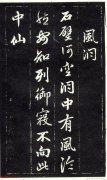 風洞
石壁何空洞中有風泠
然始知列御寇不向此
中仙